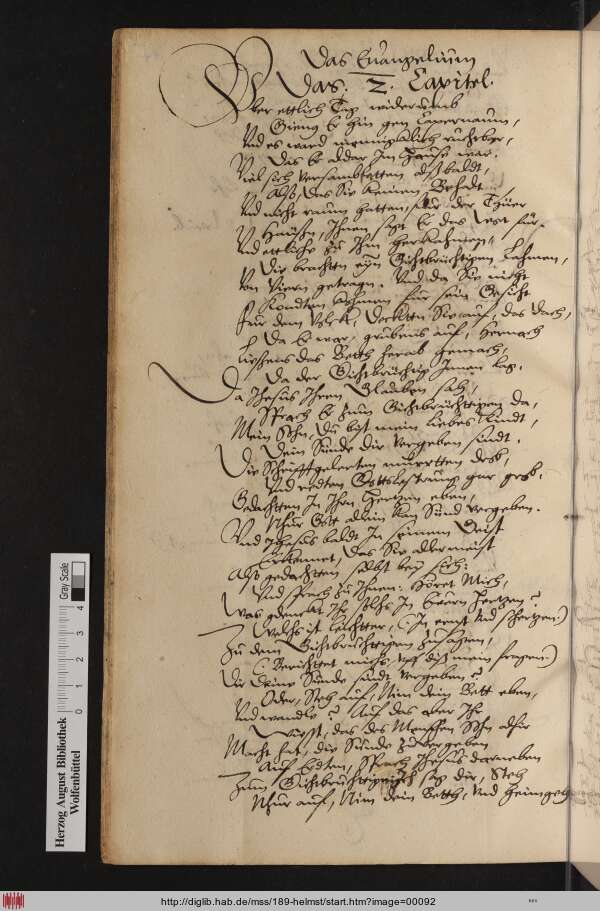 Das Euangelium
Das. 2. Capitel.
Vber ettlich Tag widerumb
Gieng Er hin gen Capernaum,
Vnd es ward ruchtbar,
Das Er aldar Im Hause war.
Viel sich versambletten alßbaldt,
Also das Sie keinen Behalt
Vnd nicht raum hetten, vor der Thüer
Ihnen sagt Er das Wort für.
Vnd ettliche zu Ihm herkahmen,
Die brachten eyn Gichtbrüchtigen Lahmen,
Von Viern getragen. Vnd da Sie nicht
Kondten kohmen für sein Gesicht
Für dem Volck, deckten Sie auf, das Dach,
Da Er war, grubens auf, hernach
Liessens das Beth herab gemach,
Da der Gichtbrüchtig Innen lag.
Da Jhesus Ihren Glauben sah,
Sprach Er zum Gichtbrüchtigen da,
Mein Sohn, Du bist mein liebes Kindt,
Dein Sünde dir vergeben sindt.
Die Schrifftgelerten
Vnd redten Gottslestrung gar grob,
Gedachtten In Ihrn Hertzen eben,
Nhur Gott allein kan Sünd vergeben.
Vnd Jhesus baldt In seinem Geist
Erkennet, das Sie allermeist
Also gedachtten selbst bey sich:
Vnd sprach zu Ihnen: Höret Mich,
Was gdenckt Ihr solchs In Euern Hertzen?
Welchs ist leichtter, (: In ernst vnd schertzen:)
Zu dem Gichtbrüchtigen zusagen,
(: Berichtet mich, vff diß mein fragen:)
Dir Deine Sünde sindt vergeben?
Oder, Steh auf, Nim dein Bett eben,
Vnd wandle? Auf das aber Ihr
Wisst, das des Menschen Sohn alhir
Macht hat, die Sünde zuvergeben
Auf Erdten, Sprach Jhesus darneben
Zum Gichtbrüchtigen: Ich sag dir, Steh
Nhur auf, Nim dein Betth, vnd heimgeh
Herzog August Bibliothek
Wolfenbüttel
Gray Scale
0 1 2 3 4
http://diglib.hab.de/mss/189-helmst/start.htm?image=00092